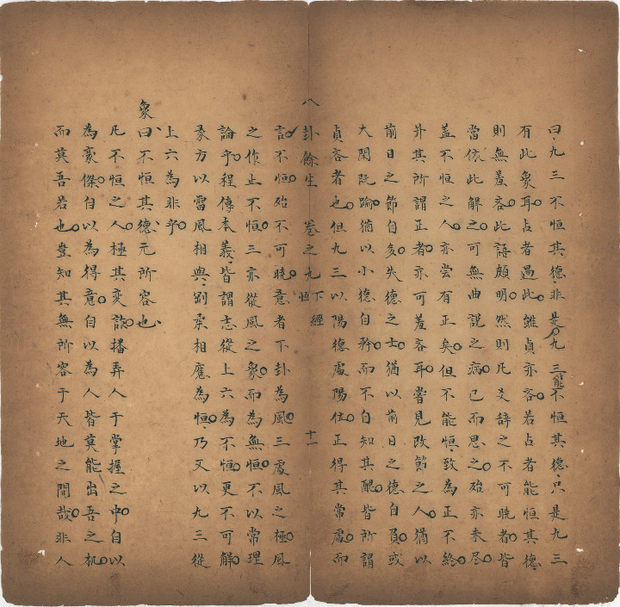 曰九三不恒其德非是九三能不恒其德只是九三
有此象耳占者遇此雖貞亦吝若占者能恒其德
則無羞吝此語頗明然則凡爻辭之不可曉者皆
當依此解之可無曲說之病已而思之殆亦未尽
蓋不恒之人亦嘗有正矣但不能恒致為正不終
并其所謂正者亦可羞吝耳嘗見改節之人猶以
前日之節自多失德之士猶以前日之德自負或
大閑既踰猶以小德自矜而不自知其醜皆所謂
貞吝者也但九三以陽德處陽位正得其常處而
八卦餘生 卷之九 下經 恒 十一
言不恒殆不可曉意者下卦為風三處風之極風
之作止不恒三亦從風之象而為無恒不以常理
論乎程傳本義皆謂志從上六為不恒更不可解
彖方以雷風相與剛柔相應為恒乃又以九三從
上六為非乎
象曰不恒其德无所容也
凡不恒之人極其变詐播弄人于掌握之中自以
為豪傑自以為得意自以為人皆莫能出吾之机
而莫吾若也豈知其無所容于天地之間哉非人